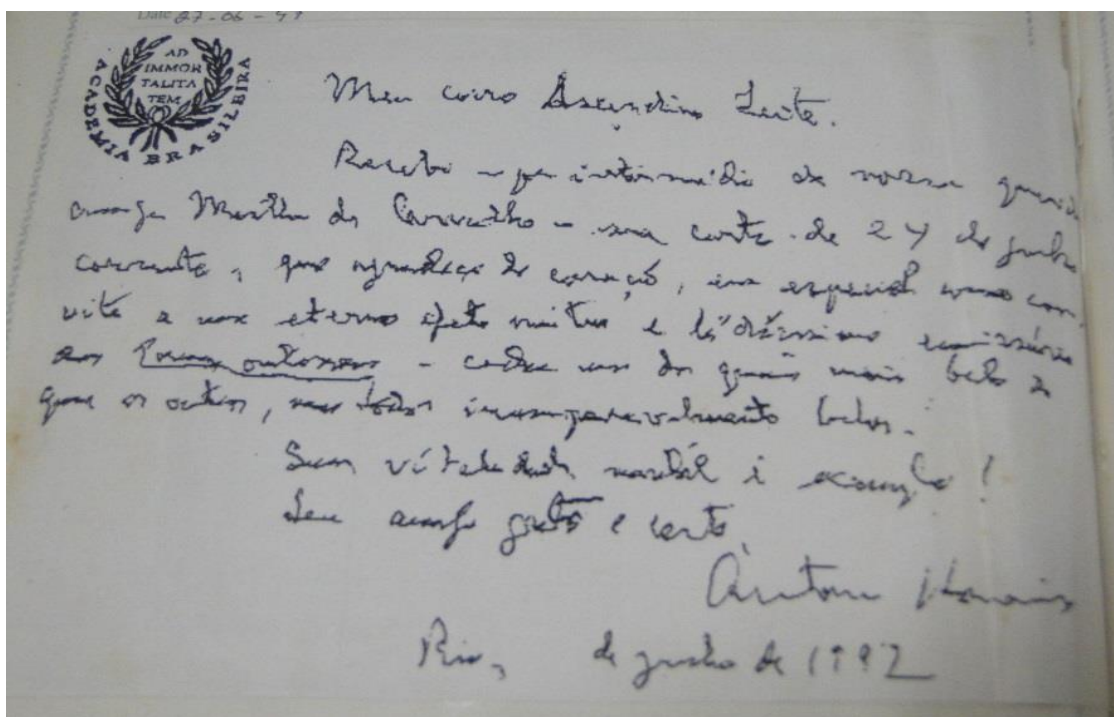 Date 27-06-97
AD IMMORTALITATEM
ACADEMIA BRASILEIRA
Meu caro Ascendino Leite.
Recebi – por intermédio de nossa querida
amiga de Carvalho – sua carta de 24 de junho
corrente, que agradeço de coração, em especial como con-
vite a um eterno e
aos Poemas outonais – cada um dos quais mais belo
que os outros, mas todos incomparavelmente belos.
Sua vitalidade é exemplo!
Seu amigo grato e certo
Antonio Houaiss
Rio, de junho de 1992